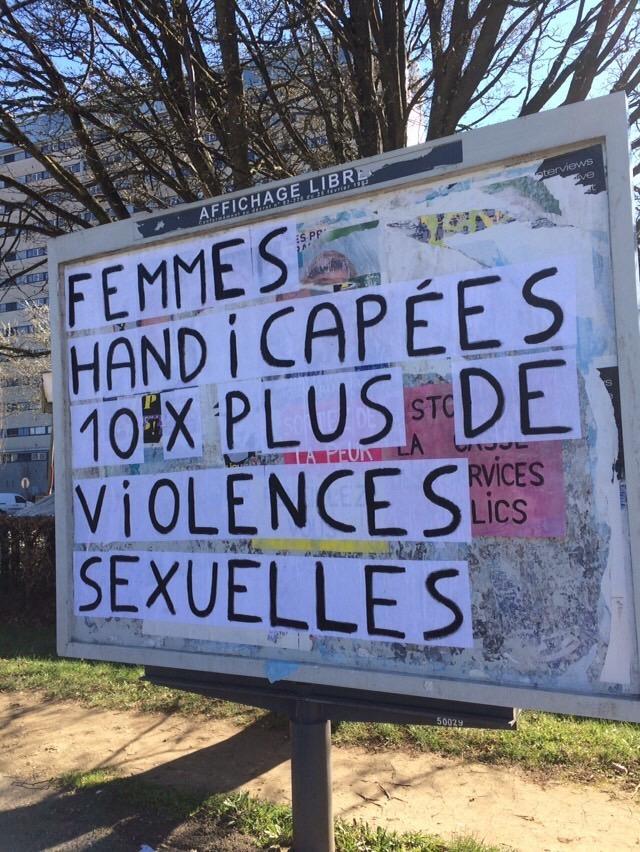 AFFICHAGE LIBRE
FEMMES
HANDiCAPÉES
10 X PLUS DE
ViOLENCES
SEXUELLES
terviews
STO
LA PEUR
LA CASSE
RVICES
LICS
50029